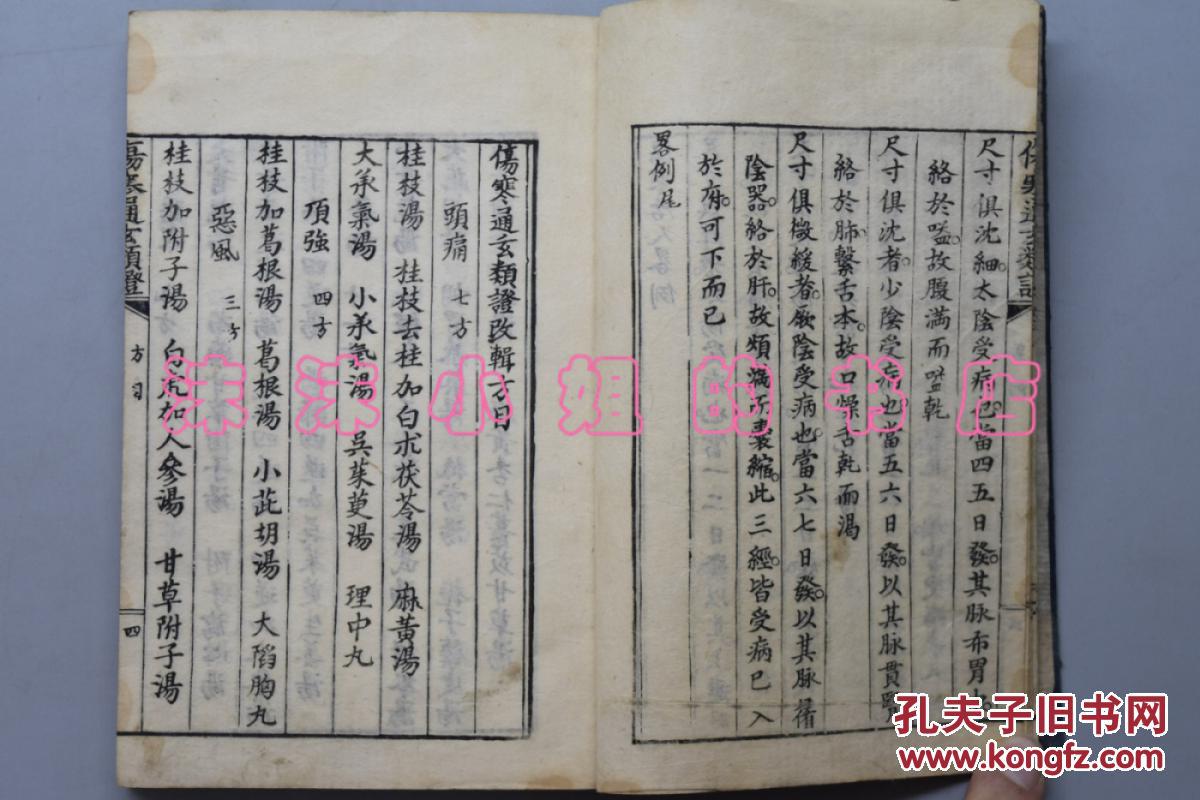 傷寒通玄類證
尺寸俱沈細太陰受病也當四五日發其脉布胃中
絡於嗌故腹滿而嗌乾
尺寸俱沈者少陰受病也當五六日發以其脉貫腎
絡於肺繫舌本故口燥舌乾而渴
尺寸俱微緩者厥陰受病也當六七日發以其脉循
陰器絡於肝故煩滿而囊縮此三經皆受病已入
於府可下而已
畧例尾
傷寒通玄類證改輯方目
頭痛 七方
桂枝湯 桂枝去桂加白朮茯苓湯 麻黃湯
大承氣湯 小承氣湯 吳茱萸湯 理中丸
項強 四方
桂枝加葛根湯 葛根湯 小茈胡湯 大陷胸丸
惡風 三方
桂枝加附子湯 白虎加人參湯 甘草附子湯
傷寒通玄類證
方目
四
沫沫小姐的书店
孔夫子旧书网
www.kongfz.com